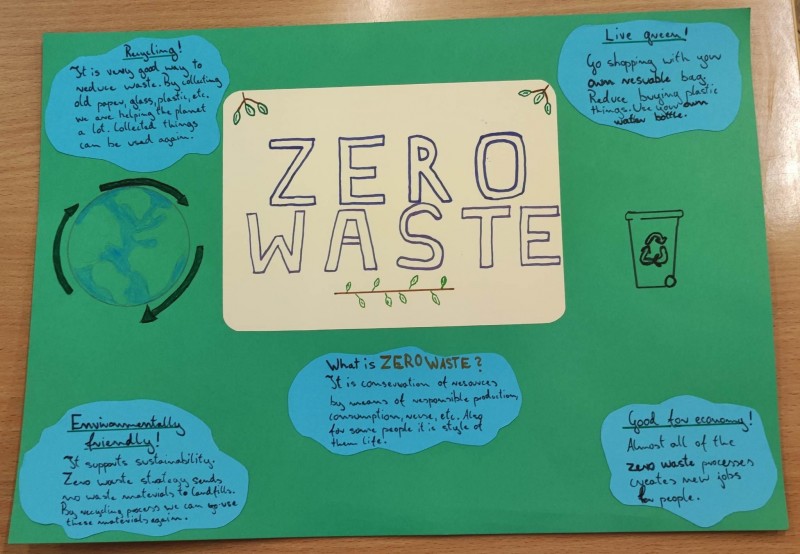 Recycling!
It is very good way to
reduce waste. By collecting
old paper, glass, plastic, etc.
we are helping the planet
a lot. Collected things
can be used again.
Live green!
Go shopping with your
own resuable bag.
Reduce buying plastic
things. Use your own
water bottle.
ZERO
WASTE
What is ZERO WASTE?
It is conservation of resources
by means of responsible production,
consumption, reuse, etc. Also
for some people it is style of
them life.
Environmentally
friendly!
It supports sustainability.
Zero waste strategy sends
no waste materials to landfills.
By recycling process we can use
these materials again.
Good for economy!
Almost all of the
zero waste processes
creates new jobs
for people.